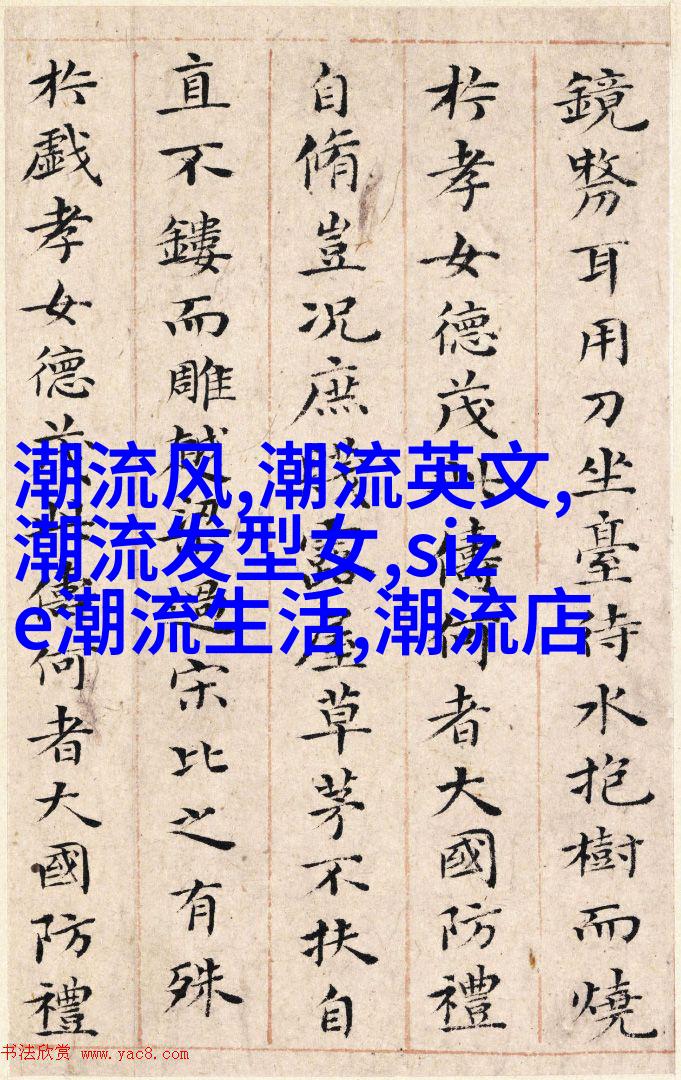 鏡耳用刀坐臺待水抱樹而燒
於孝女德茂此儔何者大國防禮
自脩豈況庶賤露屋草茅不扶自
直不鏤而雕越梁過宋比之有殊
於戲孝女德茂此儔何者大國防禮
潮流风,潮流英文,
潮流发型女,siz
e潮流生活,潮流店
书法欣赏 www.yac8.com